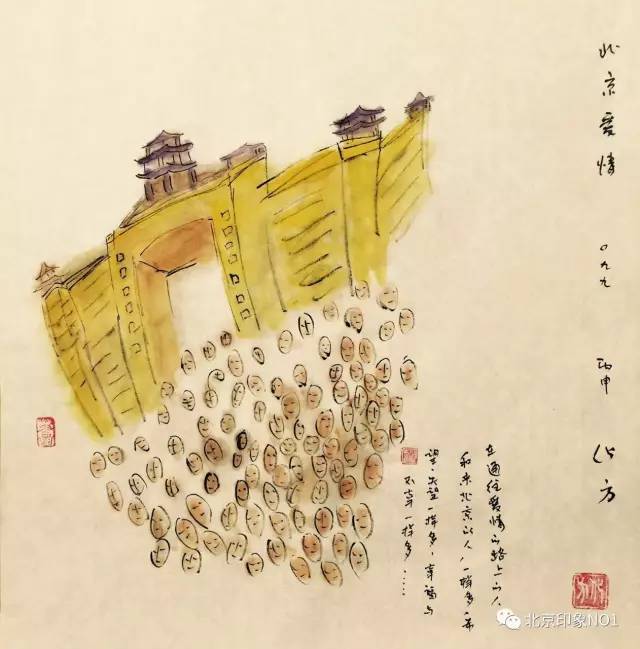 北京爱情 〇九九 丙申
在通往爱情的路上的人
和来北京的人，一样多。希
望与失望一样多，幸福与
不幸一样多……
北京印象NO1